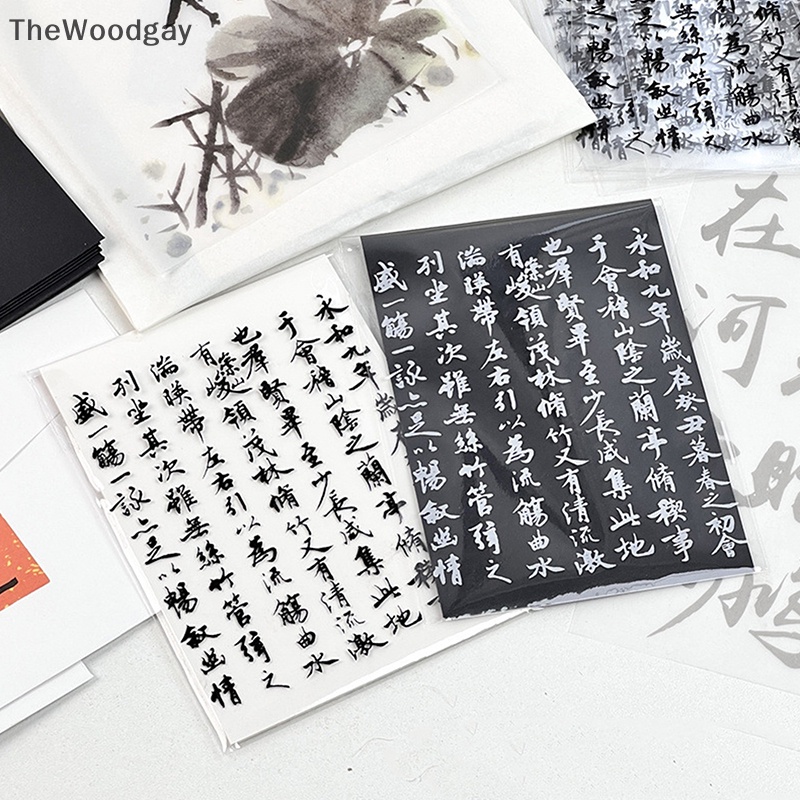 TheWoodgay
永和九年歲
于會稽山陰之蘭亭脩稧
也羣賢畢至少長咸集此地
有崇山峻領茂林脩竹又有清流激
湍暎帶左右引以為流觴曲水
列坐其次雖無絲竹管弦之
盛一觴一詠亦足以暢敘幽情
永和九年歲在癸丑暮春之初會
于會稽山陰之蘭亭脩稧事
也羣賢畢至少長咸集此地
有崇山峻領茂林脩竹又有清流激
湍暎帶左右引以為流觴曲水
列坐其次雖無絲竹管弦之
盛一觴一詠亦足以暢敘幽情
脩竹又有清流
以為流觴曲水
絲竹管弦之
暢敘幽情
在河